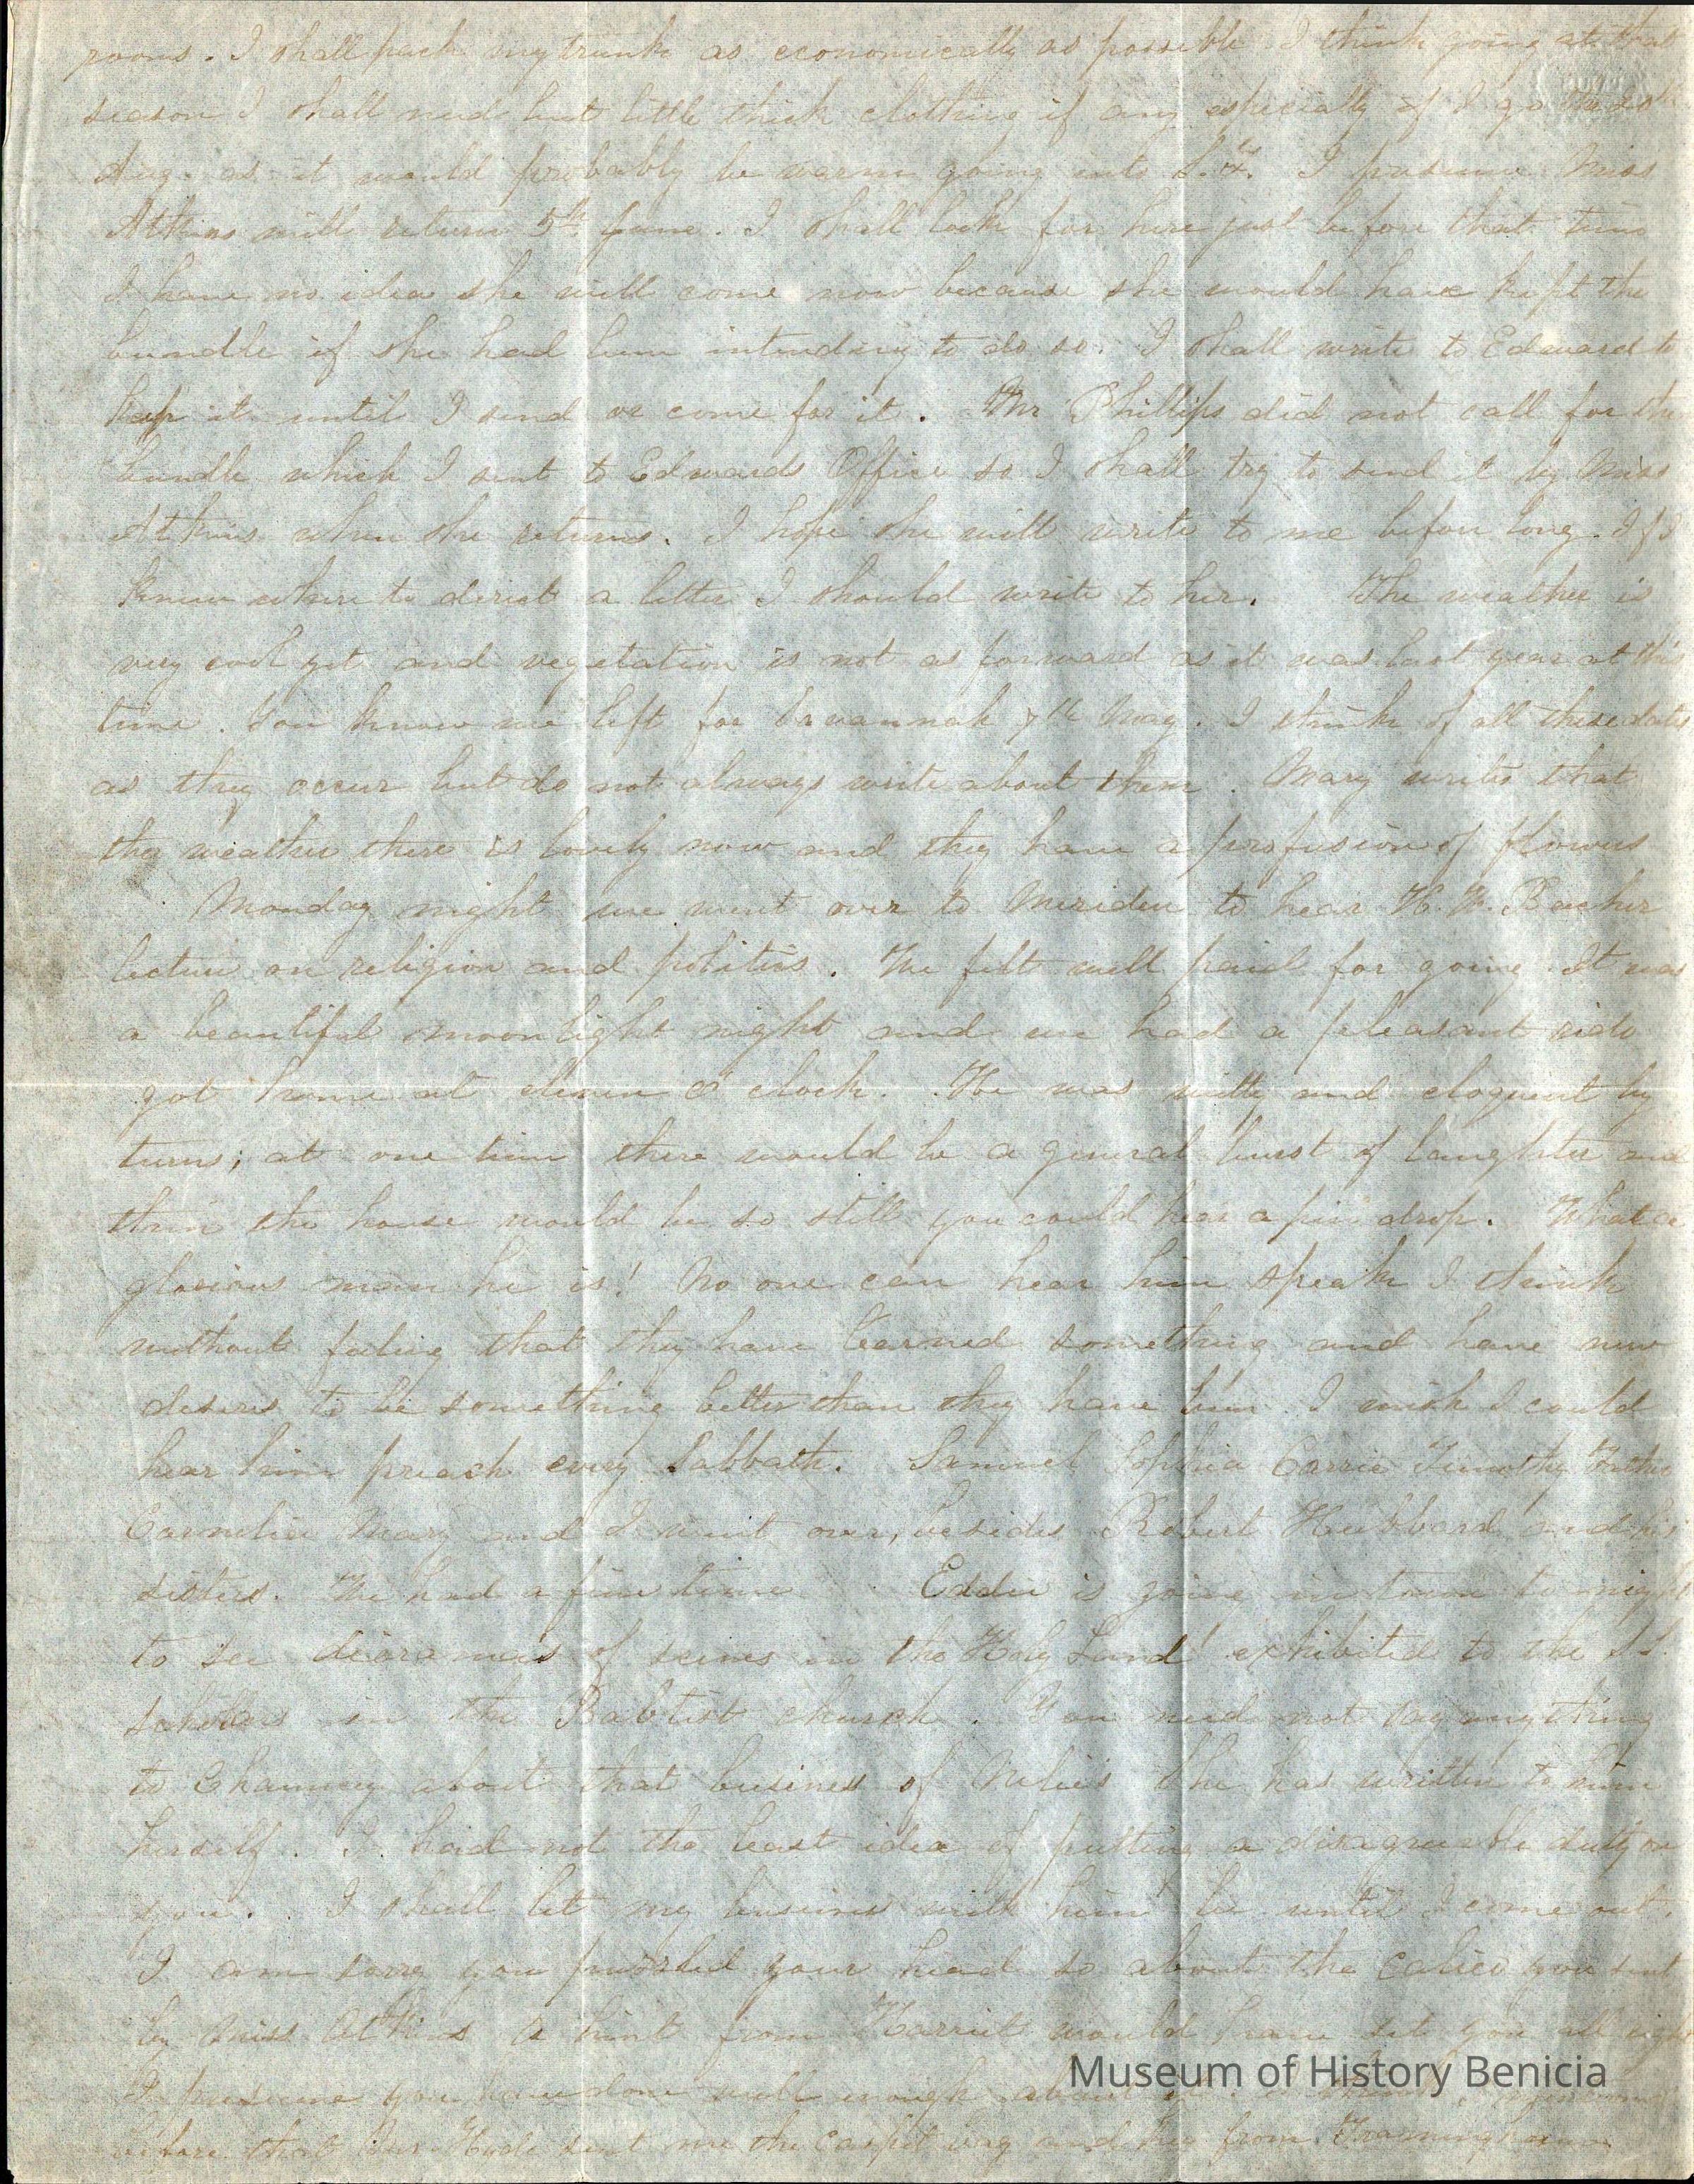 rooms. I shall pack my trunk as economically as possible I think going at that
season I shall need but little thick clothing if any especially if I go the 20th
Aug. as it would probably be warm going into S.F. I presume Miss
Atkins will return 5th June. I shall look for here just before that time
I have no idea she will come now because she would have kept the
bundle if she had been intending to do so. I shall write to Edward to
keep it until I send or come for it. Mr Phillips did not call for the
bundle which I sent to Edwards Office so I shall try to send it by Miss
Atkins when she returns. I hope she will write to me before long. If I
knew where to direct a letter I should write to her. The weather is
very cool yet and vegetation is not as forward as it was last year at this
time. You know we left for Savannah 7th May. I think of all these dates
as they occur but do not always write about them. Mary writes that
the weather there is lovely now and they have a profusion of flowers
Monday night we went over to Meriden to hear H. W. Beecher
lecture on religion and politics. We felt well paid for going. It was
a beautiful moonlight night and we had a pleasant ride
got home at eleven o'clock. He was witty and eloquent by
turns; at one time there would be a general burst of laughter and
then the house would be so still you could hear a pin drop. What a
glorious man he is! No one can hear him speak I think
without feeling that they have learned something and have new
desires to be something better than they have been. I wish I could
hear him preach every Sabbath. Samuel Sophia Carrie Timothy Father
Cornelia Mary and I went over, besides Robert Hubbard and his
sisters. We had a fine time Eddie is going in town to night
to see dioramas of scenes in the Holy Land exhibited to the S.S.
scholars in the Babtist church. You need not say anything
to Chauncey about that business of Nelies she has written to him
herself. I had not the least idea of putting a disagreeable duty on
you. I shall let my business with him be until I come out.
I am sorry you puzzled your head so about the calico you sent
by Miss Atkins a hint from Harriet would have set you all right
I presume you have done well enough about it
before that Mrs Hyde sent me the carpet bag and key from Framingham